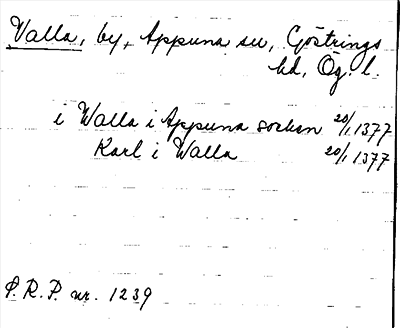 Valla, by, Appuna sn, Göstrings
hd, Ög. l.
i Walla i Appuna sockan 20/1 1377
Karl i Walla 20/1 1377
P. R. P. nr. 1239